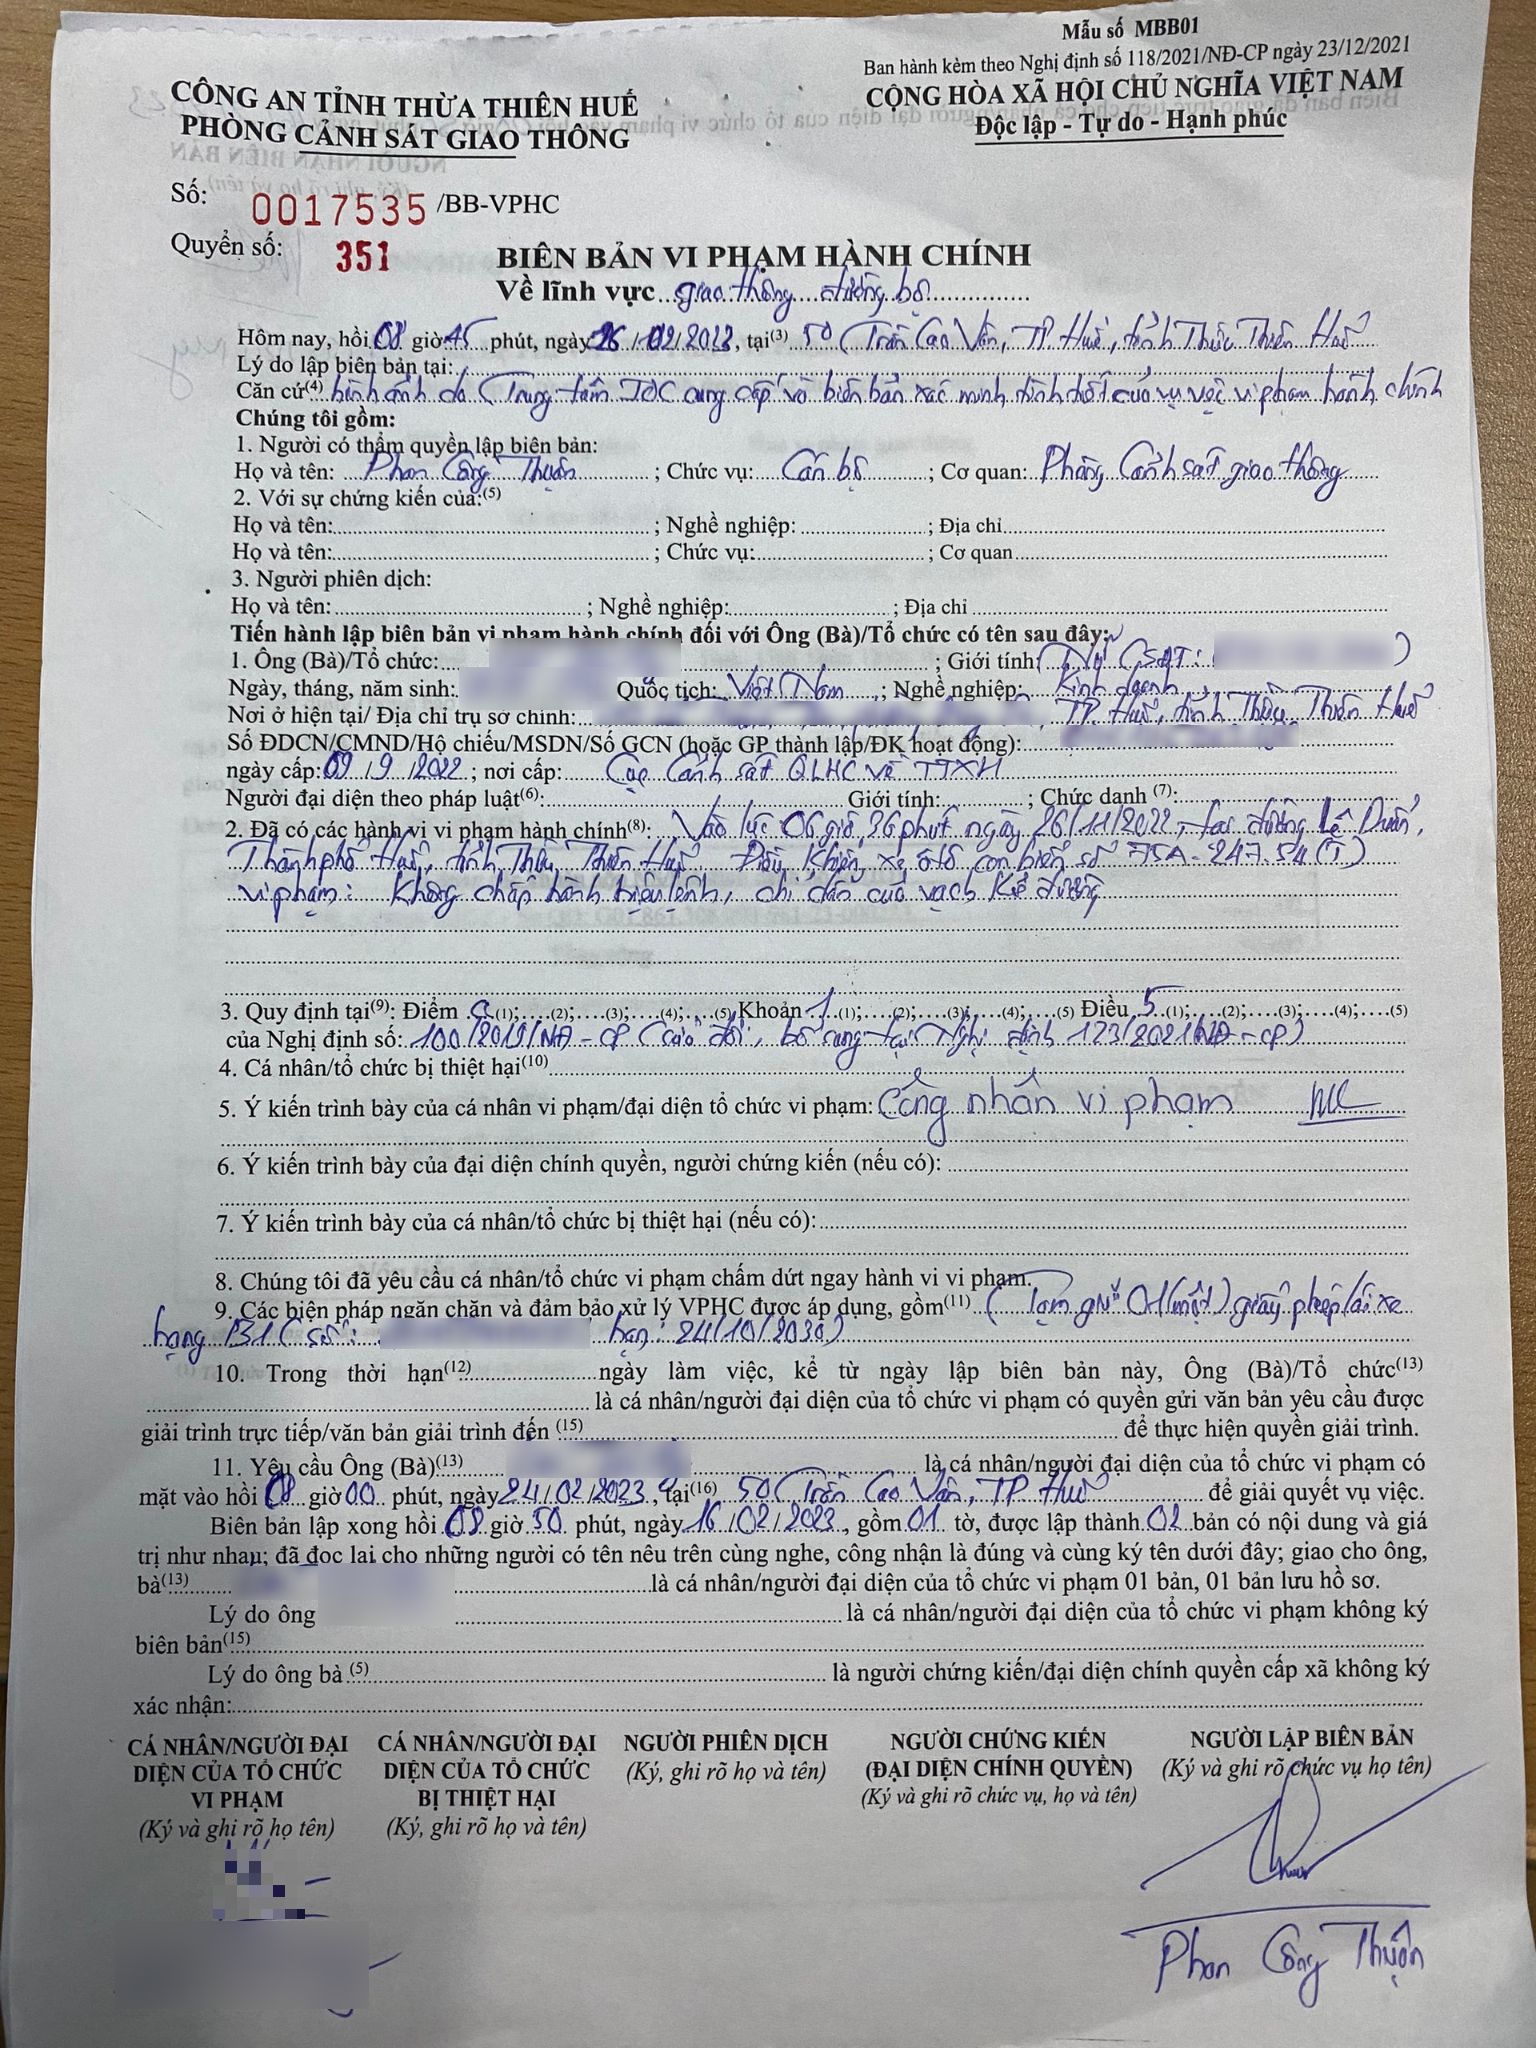 Mẫu số MBB01
Ban hành kèm theo Nghị định số 118/2021/NĐ-CP ngày 23/12/2021
CÔNG AN TỈNH THỪA THIÊN HUẾ
PHÒNG CẢNH SÁT GIAO THÔNG
CỘNG HÒA XÃ HỘI CHỦ NGHĨA VIỆT NAM
Độc lập - Tự do - Hạnh phúc
Số: 0017535 /BB-VPHC
Quyển số: 351
BIÊN BẢN VI PHẠM HÀNH CHÍNH
Về lĩnh vực giao thông đường bộ
Hôm nay, hồi 08 giờ 45 phút, ngày 16/02/2023, tại(3) 50 Trần Cao Vân, TP Huế, tỉnh Thừa Thiên Huế
Lý do lập biên bản tại:
Căn cứ(4) hình ảnh do Trung tâm IOC cung cấp và biên bản xác minh tình tiết của vụ việc vi phạm hành chính
Chúng tôi gồm:
1. Người có thẩm quyền lập biên bản:
Họ và tên: Phan Công Thuận ; Chức vụ: Cán bộ ; Cơ quan: Phòng Cảnh sát giao thông
2. Với sự chứng kiến của:(5)
Họ và tên: ; Nghề nghiệp: ; Địa chỉ
Họ và tên: ; Chức vụ: ; Cơ quan
3. Người phiên dịch:
Họ và tên: ; Nghề nghiệp: ; Địa chỉ
Tiến hành lập biên bản vi phạm hành chính đối với Ông (Bà)/Tổ chức có tên sau đây:
1. Ông (Bà)/Tổ chức: ; Giới tính: Nữ (SĐT: )
Ngày, tháng, năm sinh: Quốc tịch: Việt Nam ; Nghề nghiệp: Kinh doanh
Nơi ở hiện tại/ Địa chỉ trụ sở chính: TP. Huế, tỉnh Thừa Thiên Huế
Số ĐDCN/CMND/Hộ chiếu/MSDN/Số GCN (hoặc GP thành lập/ĐK hoạt động):
ngày cấp: 09/9/2022 ; nơi cấp: Cục Cảnh sát QLHC về TTXH
Người đại diện theo pháp luật(6): Giới tính: ; Chức danh (7):
2. Đã có các hành vi vi phạm hành chính(8): Vào lúc 06 giờ 36 phút ngày 26/11/2022, tại đường Lê Duẩn,
Thành phố Huế, tỉnh Thừa Thiên Huế. Điều khiển xe ôtô con biển số 75A-247.54 (T)
vi phạm: Không chấp hành hiệu lệnh, chỉ dẫn của vạch kẻ đường
3. Quy định tại(9): Điểm a (1); (2); (3); (4); (5) Khoản 1 (1); (2); (3); (4); (5) Điều 5 (1); (2); (3); (4); (5)
của Nghị định số: 100/2019/NĐ-CP (sửa đổi, bổ sung tại Nghị định 123/2021/NĐ-CP)
4. Cá nhân/tổ chức bị thiệt hại(10)
5. Ý kiến trình bày của cá nhân vi phạm/đại diện tổ chức vi phạm: Công nhận vi phạm
6. Ý kiến trình bày của đại diện chính quyền, người chứng kiến (nếu có):
7. Ý kiến trình bày của cá nhân/tổ chức bị thiệt hại (nếu có):
8. Chúng tôi đã yêu cầu cá nhân/tổ chức vi phạm chấm dứt ngay hành vi vi phạm.
9. Các biện pháp ngăn chăn và đảm bảo xử lý VPHC được áp dụng, gồm(11) Tạm giữ 01 (một) giấy phép lái xe
hạng B1 (số: hạn: 24/10/2030)
10. Trong thời hạn(12) ngày làm việc, kể từ ngày lập biên bản này, Ông (Bà)/Tổ chức(13)
là cá nhân/người đại diện của tổ chức vi phạm có quyền gửi văn bản yêu cầu được
giải trình trực tiếp/văn bản giải trình đến (15) để thực hiện quyền giải trình.
11. Yêu cầu Ông (Bà)(13) là cá nhân/người đại diện của tổ chức vi phạm có
mặt vào hồi 08 giờ 00 phút, ngày 24/02/2023, tại(16) 50 Trần Cao Vân, TP Huế để giải quyết vụ việc.
Biên bản lập xong hồi 08 giờ 50 phút, ngày 16/02/2023, gồm 01 tờ, được lập thành 02 bản có nội dung và giá
trị như nhau; đã đọc lại cho những người có tên nêu trên cùng nghe, công nhận là đúng và cùng ký tên dưới đây; giao cho ông,
bà(13) là cá nhân/người đại diện của tổ chức vi phạm 01 bản, 01 bản lưu hồ sơ.
Lý do ông là cá nhân/người đại diện của tổ chức vi phạm không ký
biên bản(15)
Lý do ông bà (5) là người chứng kiến/đại diện chính quyền cấp xã không ký
xác nhận:
CÁ NHÂN/NGƯỜI ĐẠI DIỆN CỦA TỔ CHỨC VI PHẠM
(Ký và ghi rõ họ tên)
CÁ NHÂN/NGƯỜI ĐẠI DIỆN CỦA TỔ CHỨC BỊ THIỆT HẠI
(Ký, ghi rõ họ và tên)
NGƯỜI PHIÊN DỊCH
(Ký, ghi rõ họ và tên)
NGƯỜI CHỨNG KIẾN
(ĐẠI DIỆN CHÍNH QUYỀN)
(Ký và ghi rõ chức vụ, họ và tên)
NGƯỜI LẬP BIÊN BẢN
(Ký và ghi rõ chức vụ họ tên)
Phan Công Thuận